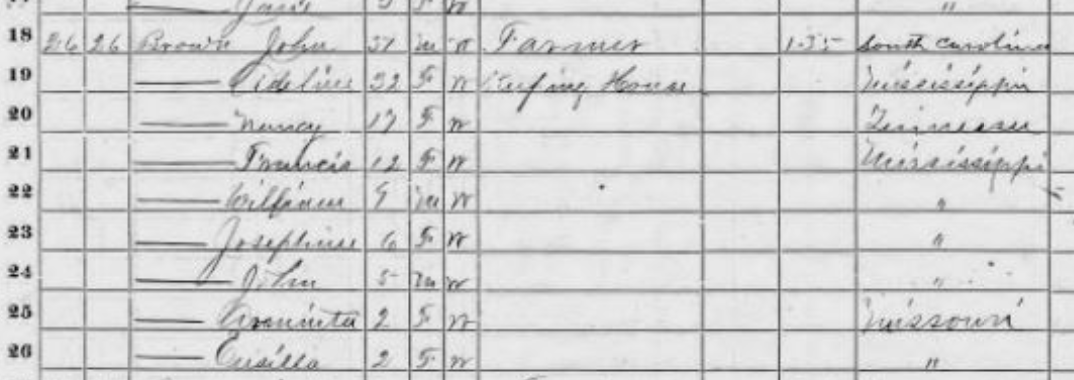 Jane 9 F W "
18 26 26 Brown John 37 M W Farmer 135 South Carolina
19 —— Adeline 32 F W Keeping House Mississippi
20 —— Nancy 17 F W Tennessee
21 —— Francis 12 F W Mississippi
22 —— William 9 M W "
23 —— Josephine 6 F W "
24 —— John 5 M W "
25 —— 2 F W Missouri
26 —— 2 F W "